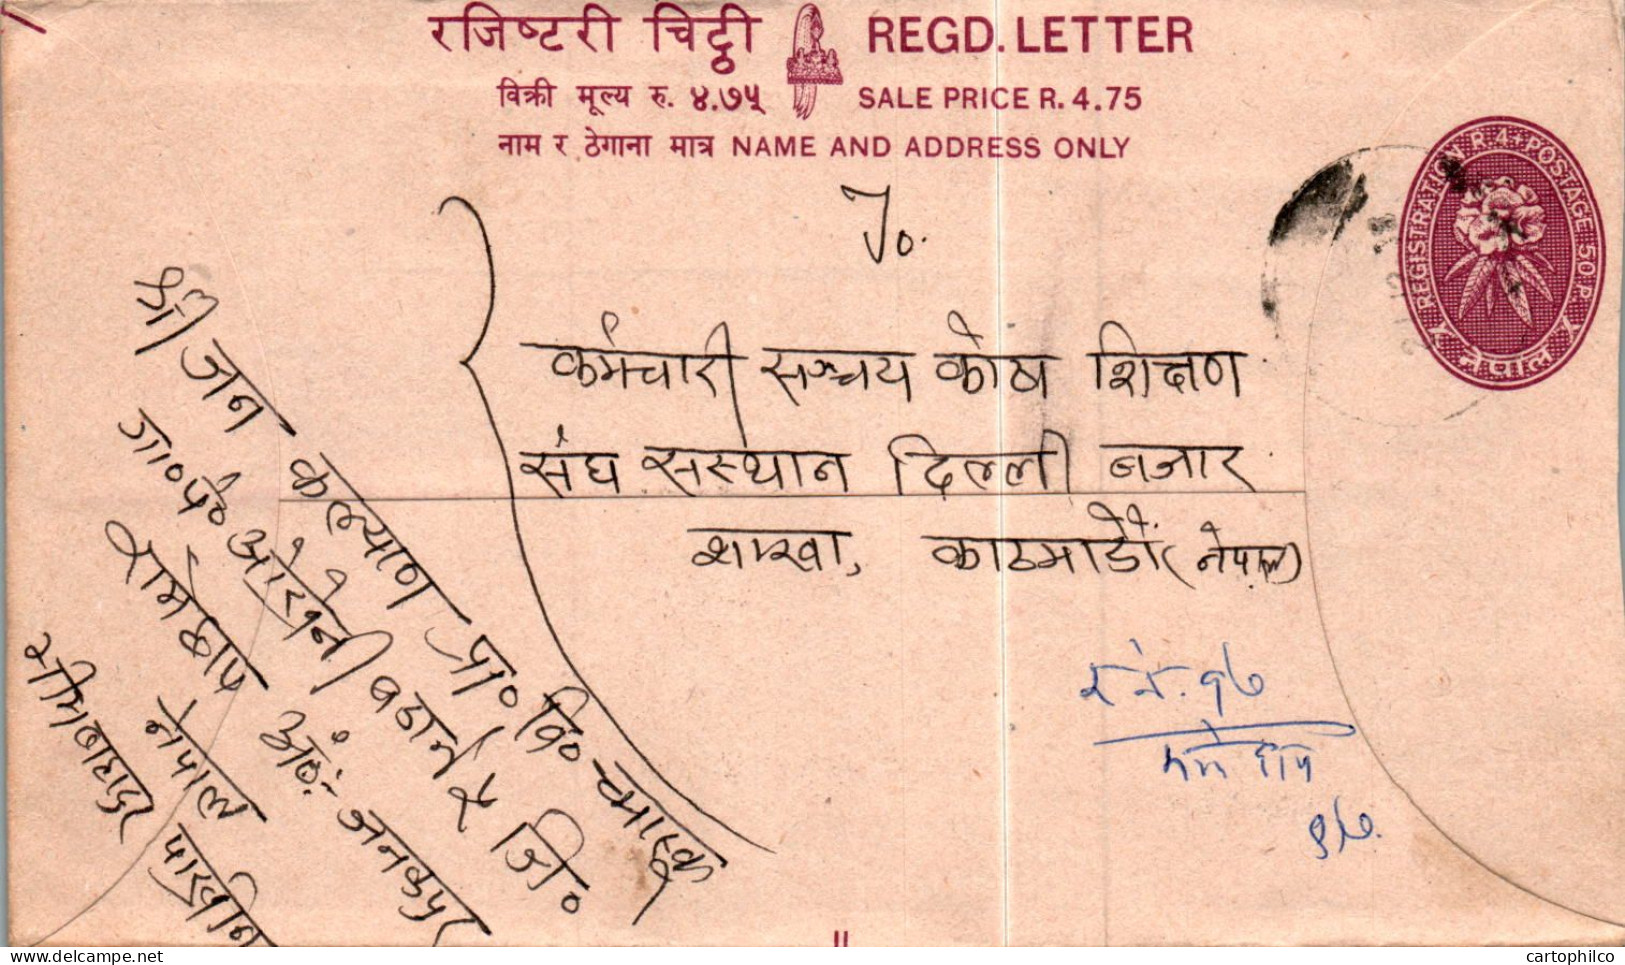 रजिष्टरी चिट्ठी REGD. LETTER
विक्री मूल्य रु. ४.७५ SALE PRICE R. 4.75
नाम र ठेगाना मात्र NAME AND ADDRESS ONLY
REGISTRATION R.4+POSTAGE 50 P.
नेपाल
To.
कर्मचारी सञ्चय कोष शिक्षण
संघ संस्थान दिल्ली बजार
शाखा, काठमाडौं (नेपाल)
र.नं. १७
१७.
श्री जन कल्याण प्रा० वि०
गा० पं०
रामेछाप अं०:- जनकपुर
नेपाल
भीमबाहादुर
cartophilco